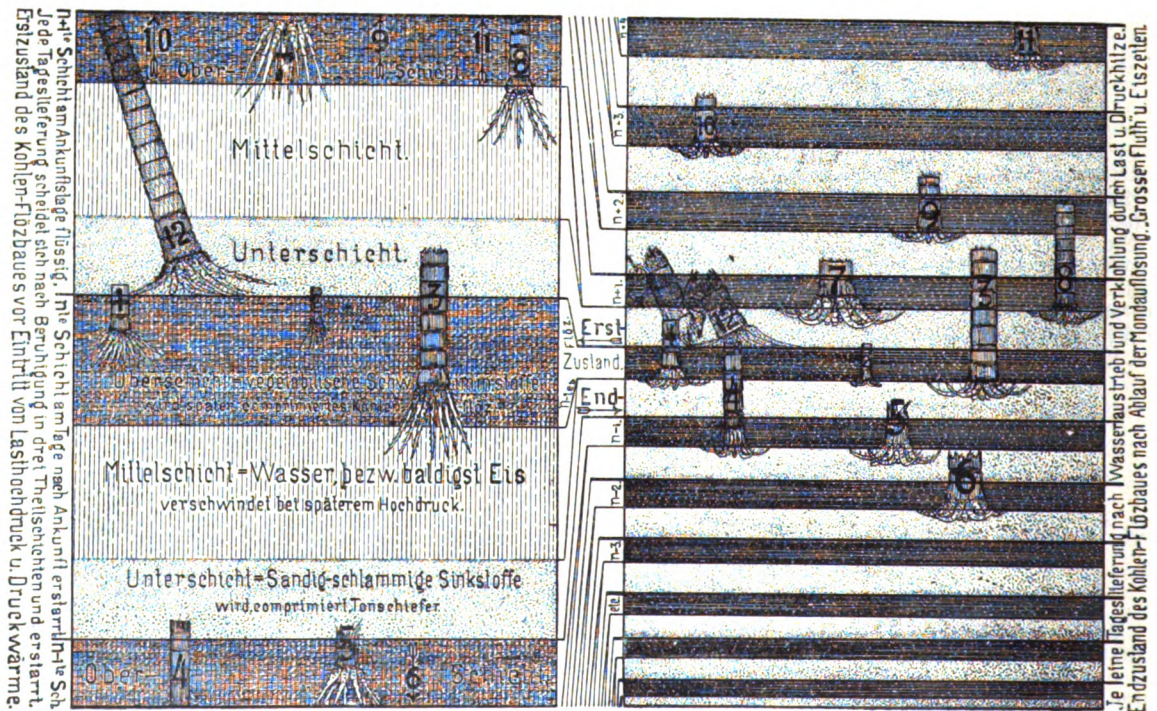 n+1te Schicht am Ankunftstage flüssig. | nte Schicht am Tage nach Ankunft erstarrt | n-1te Sch.
Jede Tageslieferung scheidet sich nach Beruhigung in drei Theilschichten und erstarrt.
Erstzustand des Kohlen-Flözbaues vor Eintritt von Lasthochdruck u. Druckwärme.
10
7
9
11
8
Ober-
Schicht
Mittelschicht.
12
Unterschicht.
1
2
3
Oberschicht = vegetabilische Schwimmstoffe
wird später comprimiertes Kohlenflöz
Mittelschicht = Wasser, bezw. baldigst Eis
verschwindet bei späterem Hochdruck.
Unterschicht = Sandig-schlammige Sinkstoffe
wird, comprimiert, Tonschiefer.
4
5
6
Ober-
Schicht
n+4
n+3
n+2.
n+1.
Erst-
Zustand.
End-
n-1.
n-2.
n-3.
etc.
11
10
9
8
7
3
12
1
2
4
5
6
Je eine Tageslieferung nach Wasseraustrieb und Verkohlung durch Last u. Druckhitze.
Endzustand des Kohlen-Flözbaues nach Ablauf der Mondauflösung, „Grossen Fluth" u. Eiszeiten.